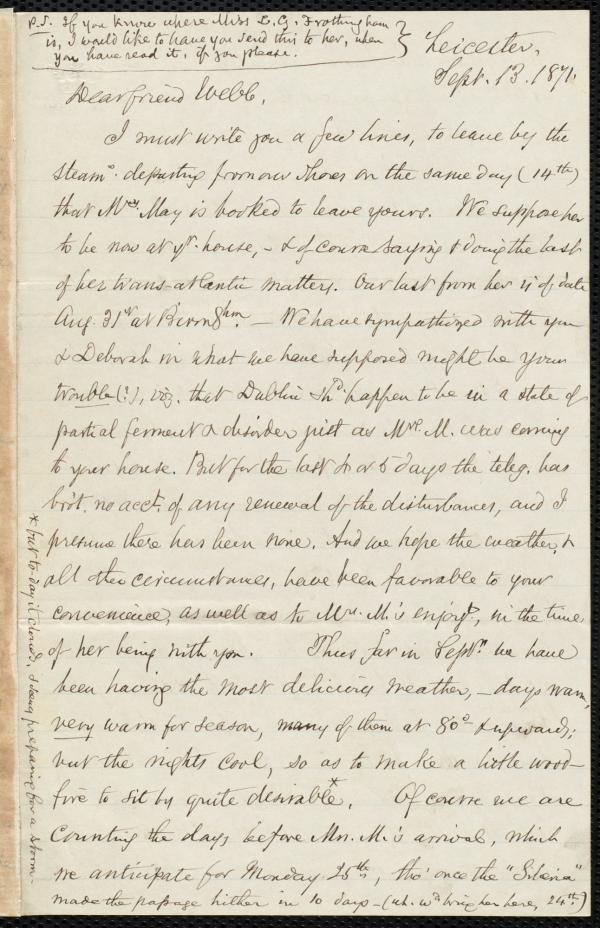 P.S. If you know where Miss L. G. Frothingham
is, I would like to have you send this to her, when
you have read it, if you please.
Leicester,
Sept. 13. 1871.
Dear friend Webb,
I must write you a few lines, to leave by the
steamr. departing from our shores on the same day (14th)
that Mrs. May is booked to leave yours. We suppose her
to be now at yr. house, - & of course saying & doing the last
of her trans-atlantic matters. Our last from her is of date
Aug. 31st at Birmghm. - We have sympathized with you
& Deborah in what we have supposed might be your
trouble (?), viz. that Dublin shd. happen to be in a state of
partial ferment & disorder just as Mrs. M. was coming
to your house. But for the last 4 or 5 days the teleg. has
bro't. no acct. of any renewal of the disturbances, and I
presume there has been none. And we hope the weather, &
all other circumstances, have been favorable to your
convenience, as well as to Mrs. M.'s enjoyt., in the time
of her being with you. Thus far in Septr. we have
been having the most delicious weather, - days warm,
very warm for season, many of them at 80° & upwards;
but the nights cool, so as to make a little wood-
fire to sit by quite desirable*. Of course we are
Counting the days before Mrs. M.'s arrival, which
we anticipate for Monday 25th, tho' once the "Siberia"
made the passage hither in 10 days - (wh. wd. bring her here, 24th.)
* but to-day it clouds, & is preparing for a storm -